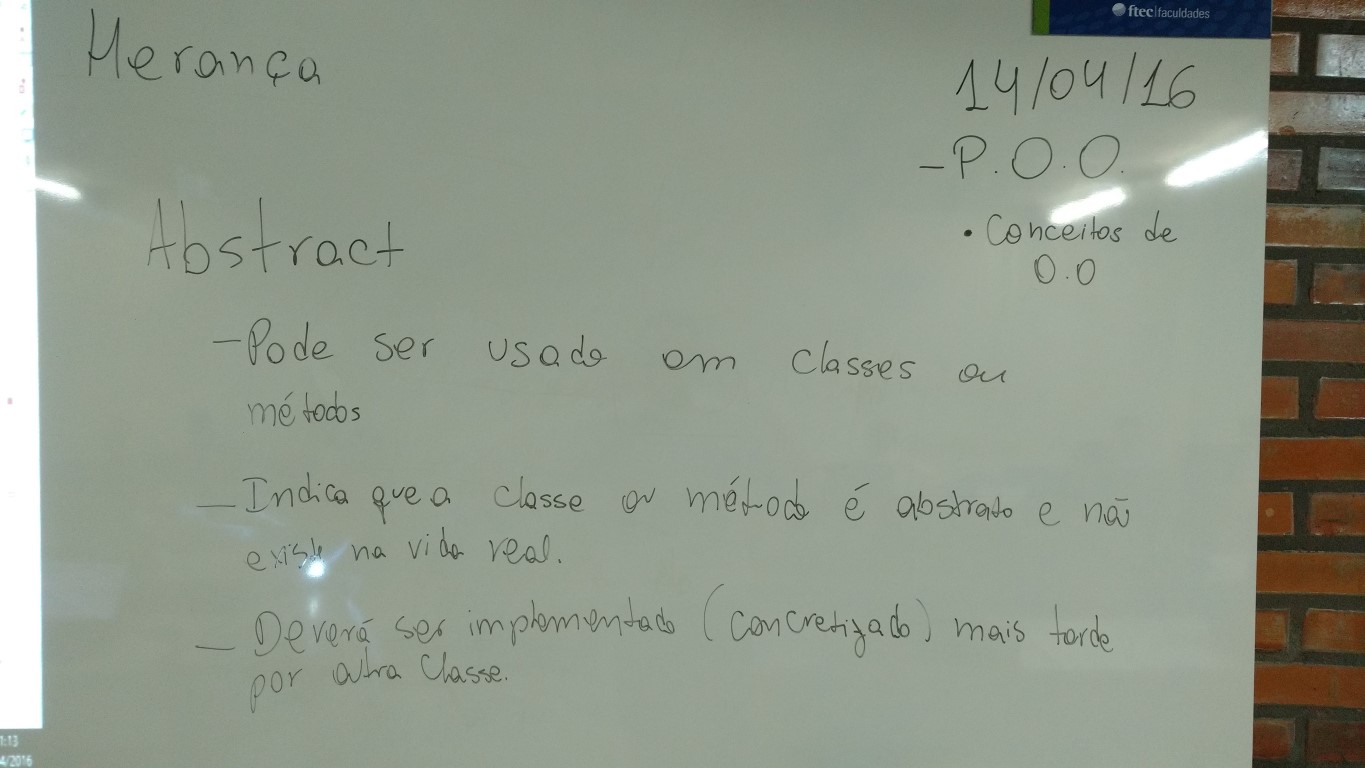 ftec|faculdades
Herança
14/04/16
- P.O.O.
• Conceitos de
O.O
Abstract
- Pode ser usado em classes ou
métodos
- Indica que a classe ou método é abstrato e não
existe na vida real.
- Deverá ser implementado (concretizado) mais tarde
por outra classe.
1:13
4/2016